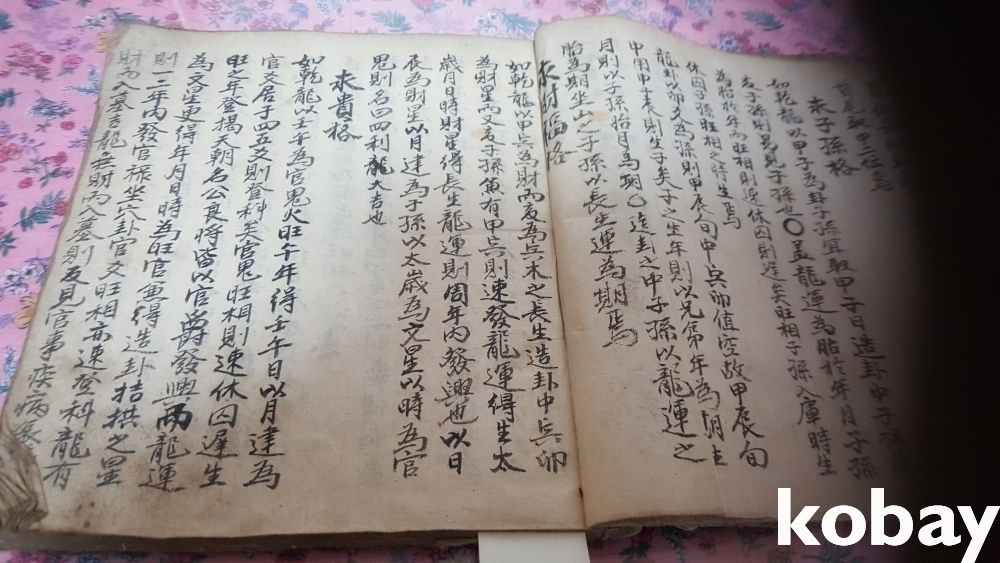 求子孫格
如乾龍以甲子為卦子孫宜取甲子日造卦中子
子孫則易見子孫也〇盖龍運為胎於年月子孫
為胎於年內旺相則速休囚則遲矣旺相子孫入庫時生
休囚子孫旺相之時生焉
龍卦以初爻為源則甲辰旬中寅卯值空故甲辰旬
甲用甲子表則生子矣子之生年則以兄弟年為期生
月則以子孫胎月為期〇造卦之中子孫以龍運之
胎為期坐山之子孫以長生運為期焉
求財福格
如乾龍以甲寅為財而亥為寅木之長生造卦中寅卯
為財星而又亥子孫兼有甲寅則速發龍運得生太
歲月日時財星得長生龍運則周年內發興也以日
辰為財星以月建為子孫以太歲為文星以時為官
鬼則名曰四利龍大吉也
求貴格
如乾龍以壬午為官鬼火旺午年得壬午日以月建為
官爻居于四五爻則登科矣官鬼旺相則速休囚遲生
旺之年登揭天朝名公良時皆以官爵發興而龍運
為文星更得年月日時為旺官兼得造卦拮拱之星
則一二年內發官祿坐穴卦官爻旺相亦速登科龍有
財而入墓吉龍無財而入墓則反見官事疾病
kobay